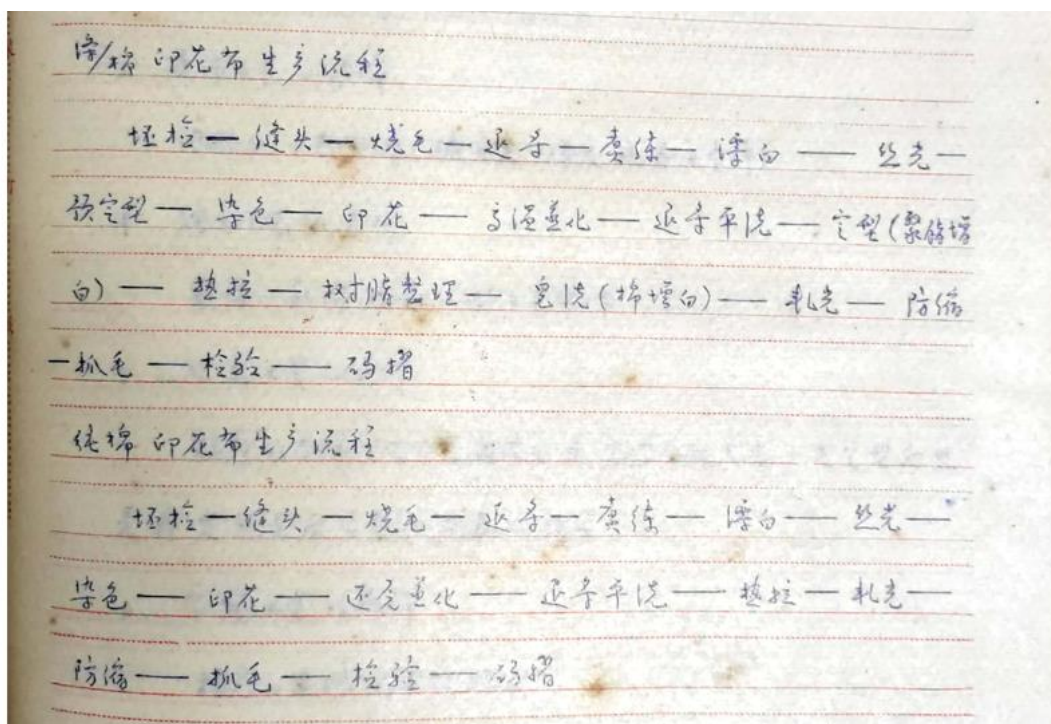 涤/棉 印花布生产流程
坯检 — 缝头 — 烧毛 — 退浆 — 煮练 — 漂白 — 丝光 —
预定型 — 染色 — 印花 — 高温蒸化 — 退浆平洗 — 定型(聚酯增
白) — 热拉 — 树脂整理 — 皂洗(棉增白) — 轧光 — 防缩
— 抓毛 — 检验 — 码摺
纯棉印花布生产流程
坯检 — 缝头 — 烧毛 — 退浆 — 煮练 — 漂白 — 丝光 —
染色 — 印花 — 还原蒸化 — 退浆平洗 — 热拉 — 轧光 —
防缩 — 抓毛 — 检验 — 码摺